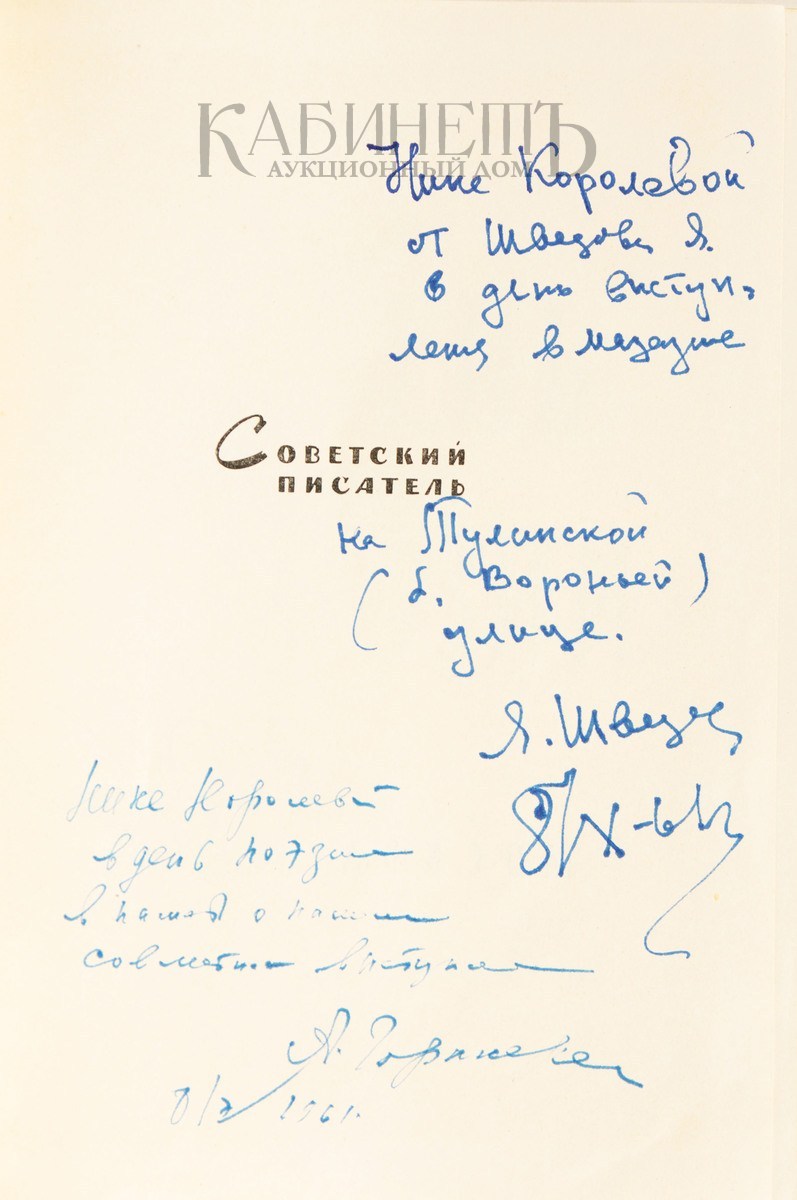 КАБИНЕТЪ
АУКЦИОННЫЙ ДОМ
Нине Королевой
от Шведова Я.
в день выступ-
ления в магазине
СОВЕТСКИЙ
ПИСАТЕЛЬ
на Тулинской
(б. Вороньей)
улице.
Я. Шведов
8/X-61г
Нине Королевой
в день поэзии
в память о нашем
совместном выступлении
А.
8/X 1961.